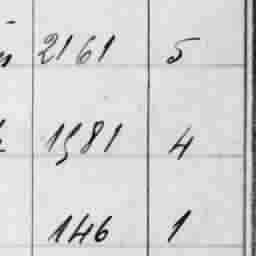 2161 5
1581 4
146 1